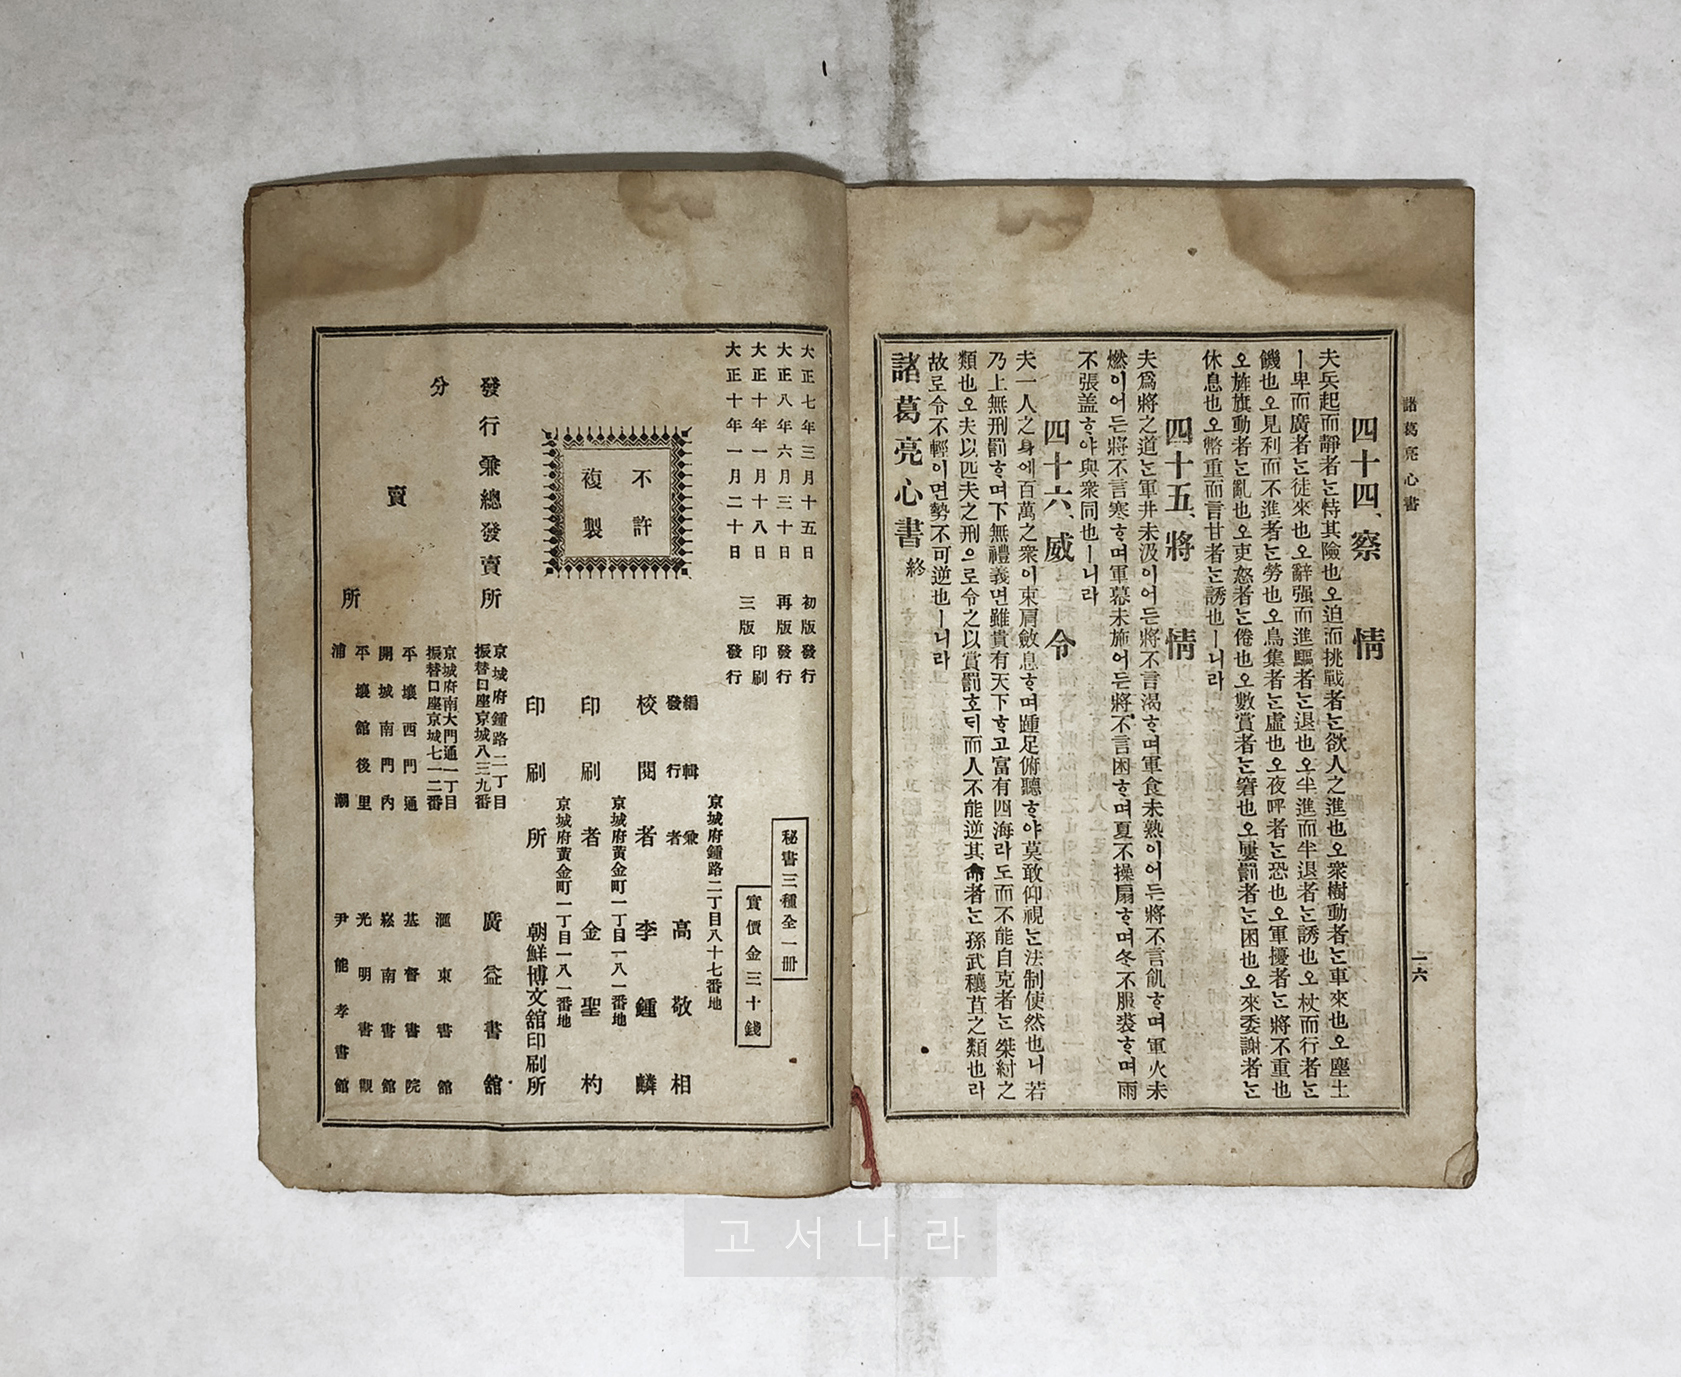 諸葛亮心書
一六
四十四、察情
夫兵起而靜者는恃其險也오迫而挑戰者는欲人之進也오衆樹動者는車來也오塵土
ㅣ卑而廣者는徒來也오辭强而進驅者는退也오半進而半退者는誘也오杖而行者는
饑也오見利而不進者는勞也오鳥集者는虛也오夜呼者는恐也오軍擾者는將不重也
오旌旗動者는亂也오吏怒者는倦也오數賞者는窘也오屢罰者는困也오來委謝者는
休息也오幣重而言甘者는誘也ㅣ니라
四十五、將情
夫爲將之道는軍井未汲이어든將不言渴ᄒᆞ며軍食未熟이어든將不言飢ᄒᆞ며軍火未
燃이어든將不言寒ᄒᆞ며軍幕未施어든將不言困ᄒᆞ며夏不操扇ᄒᆞ며冬不服裘ᄒᆞ며雨
不張盖ᄒᆞ야與衆同也ㅣ니라
四十六、威令
夫一人之身에百萬之衆이束肩斂息ᄒᆞ며踵足俯聽ᄒᆞ야莫敢仰視는法制使然也니若
乃上無刑罰ᄒᆞ며下無禮義면雖貴有天下ᄒᆞ고富有四海라도而不能自克者는桀紂之
類也오夫以匹夫之刑으로令之以賞罰호ᄃᆡ而人不能逆其命者는孫武穰苴之類也라
故로令不輕이면勢不可逆也ㅣ니라
諸葛亮心書 終
大正七年三月十五日 初版發行
大正八年六月三十日 再版發行
大正十年一月十八日 三版印刷
大正十年一月二十日 發行
不許
複製
秘書三種全一册
實價金三十錢
京城府鍾路二丁目八十七番地
編輯兼
發行者 高敬相
校閱者 李鍾麟
京城府黃金町一丁目一八一番地
印刷者 金聖杓
京城府黃金町一丁目一八一番地
印刷所 朝鮮博文舘印刷所
發行兼總發賣所
京城府鍾路二丁目
振替口座京城八三九番
廣益書舘
分賣所
京城府南大門通一丁目
振替口座京城七一二番
滙東書舘
平壤西門通 基督書院
開城南門內 崧南書舘
平壤舘後里 光明書觀
浦潮 尹能孝書舘
고서나라